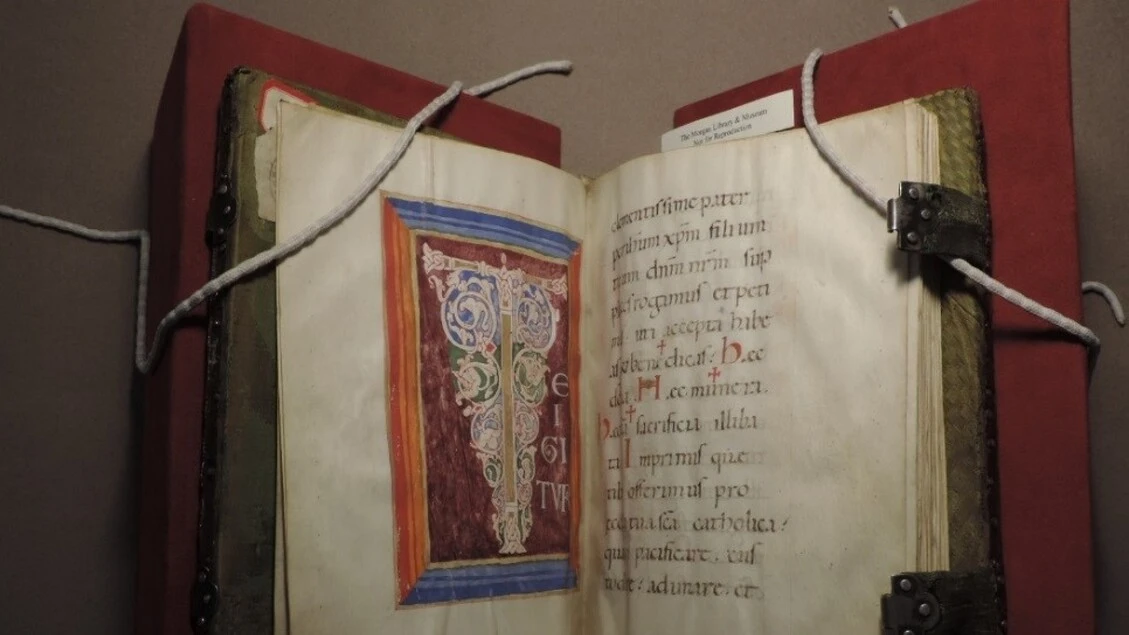 The Morgan Library & Museum
Not for Reproduction
T
E
I
GI
TVR
clementissime pater
per ihum xp̄m filium
tuum dn̄m nr̄m sup
plices rogamus et peti
mus. uti accepta habe
benedicas. h.ec
dona H.ec munera.
h.ec sacrificia illiba
ta. Inprimis que
tibi offerimus pro
tua sc̄a catholica:
quā pacificare. cus
todire: adunare. et